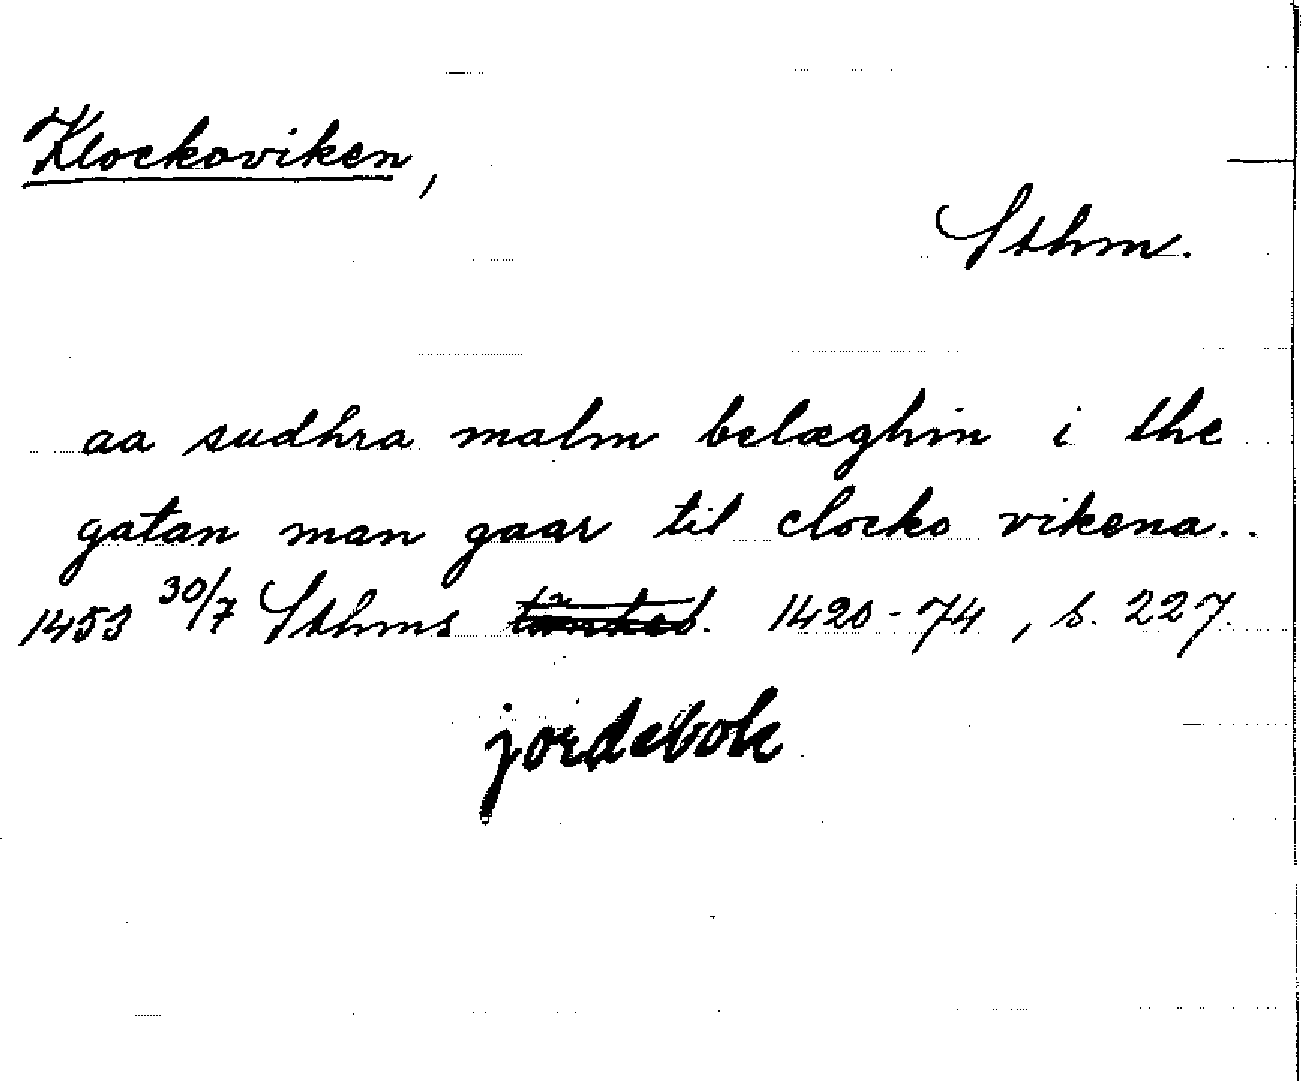 Klockoviken,
Sthm.
aa sudhra malm belæghin i the
gatan man gaar til clocko vikena..
1453 30/7 Sthms 1420-74, s. 227.
jordebok